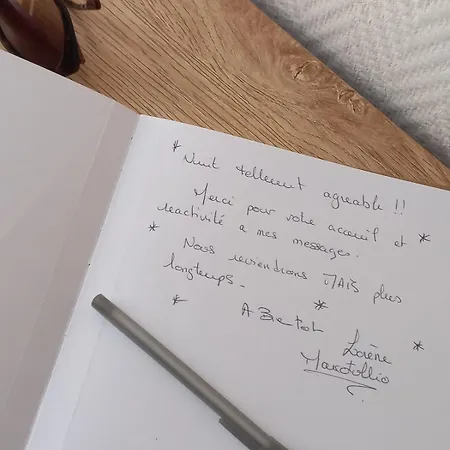 * Nuit tellement agreable !!
Merci pour votre accueil et *
reactivité a mes messages.
* Nous reviendrons MAIS plus
longtemps.
* A Bientot *
Lorène *